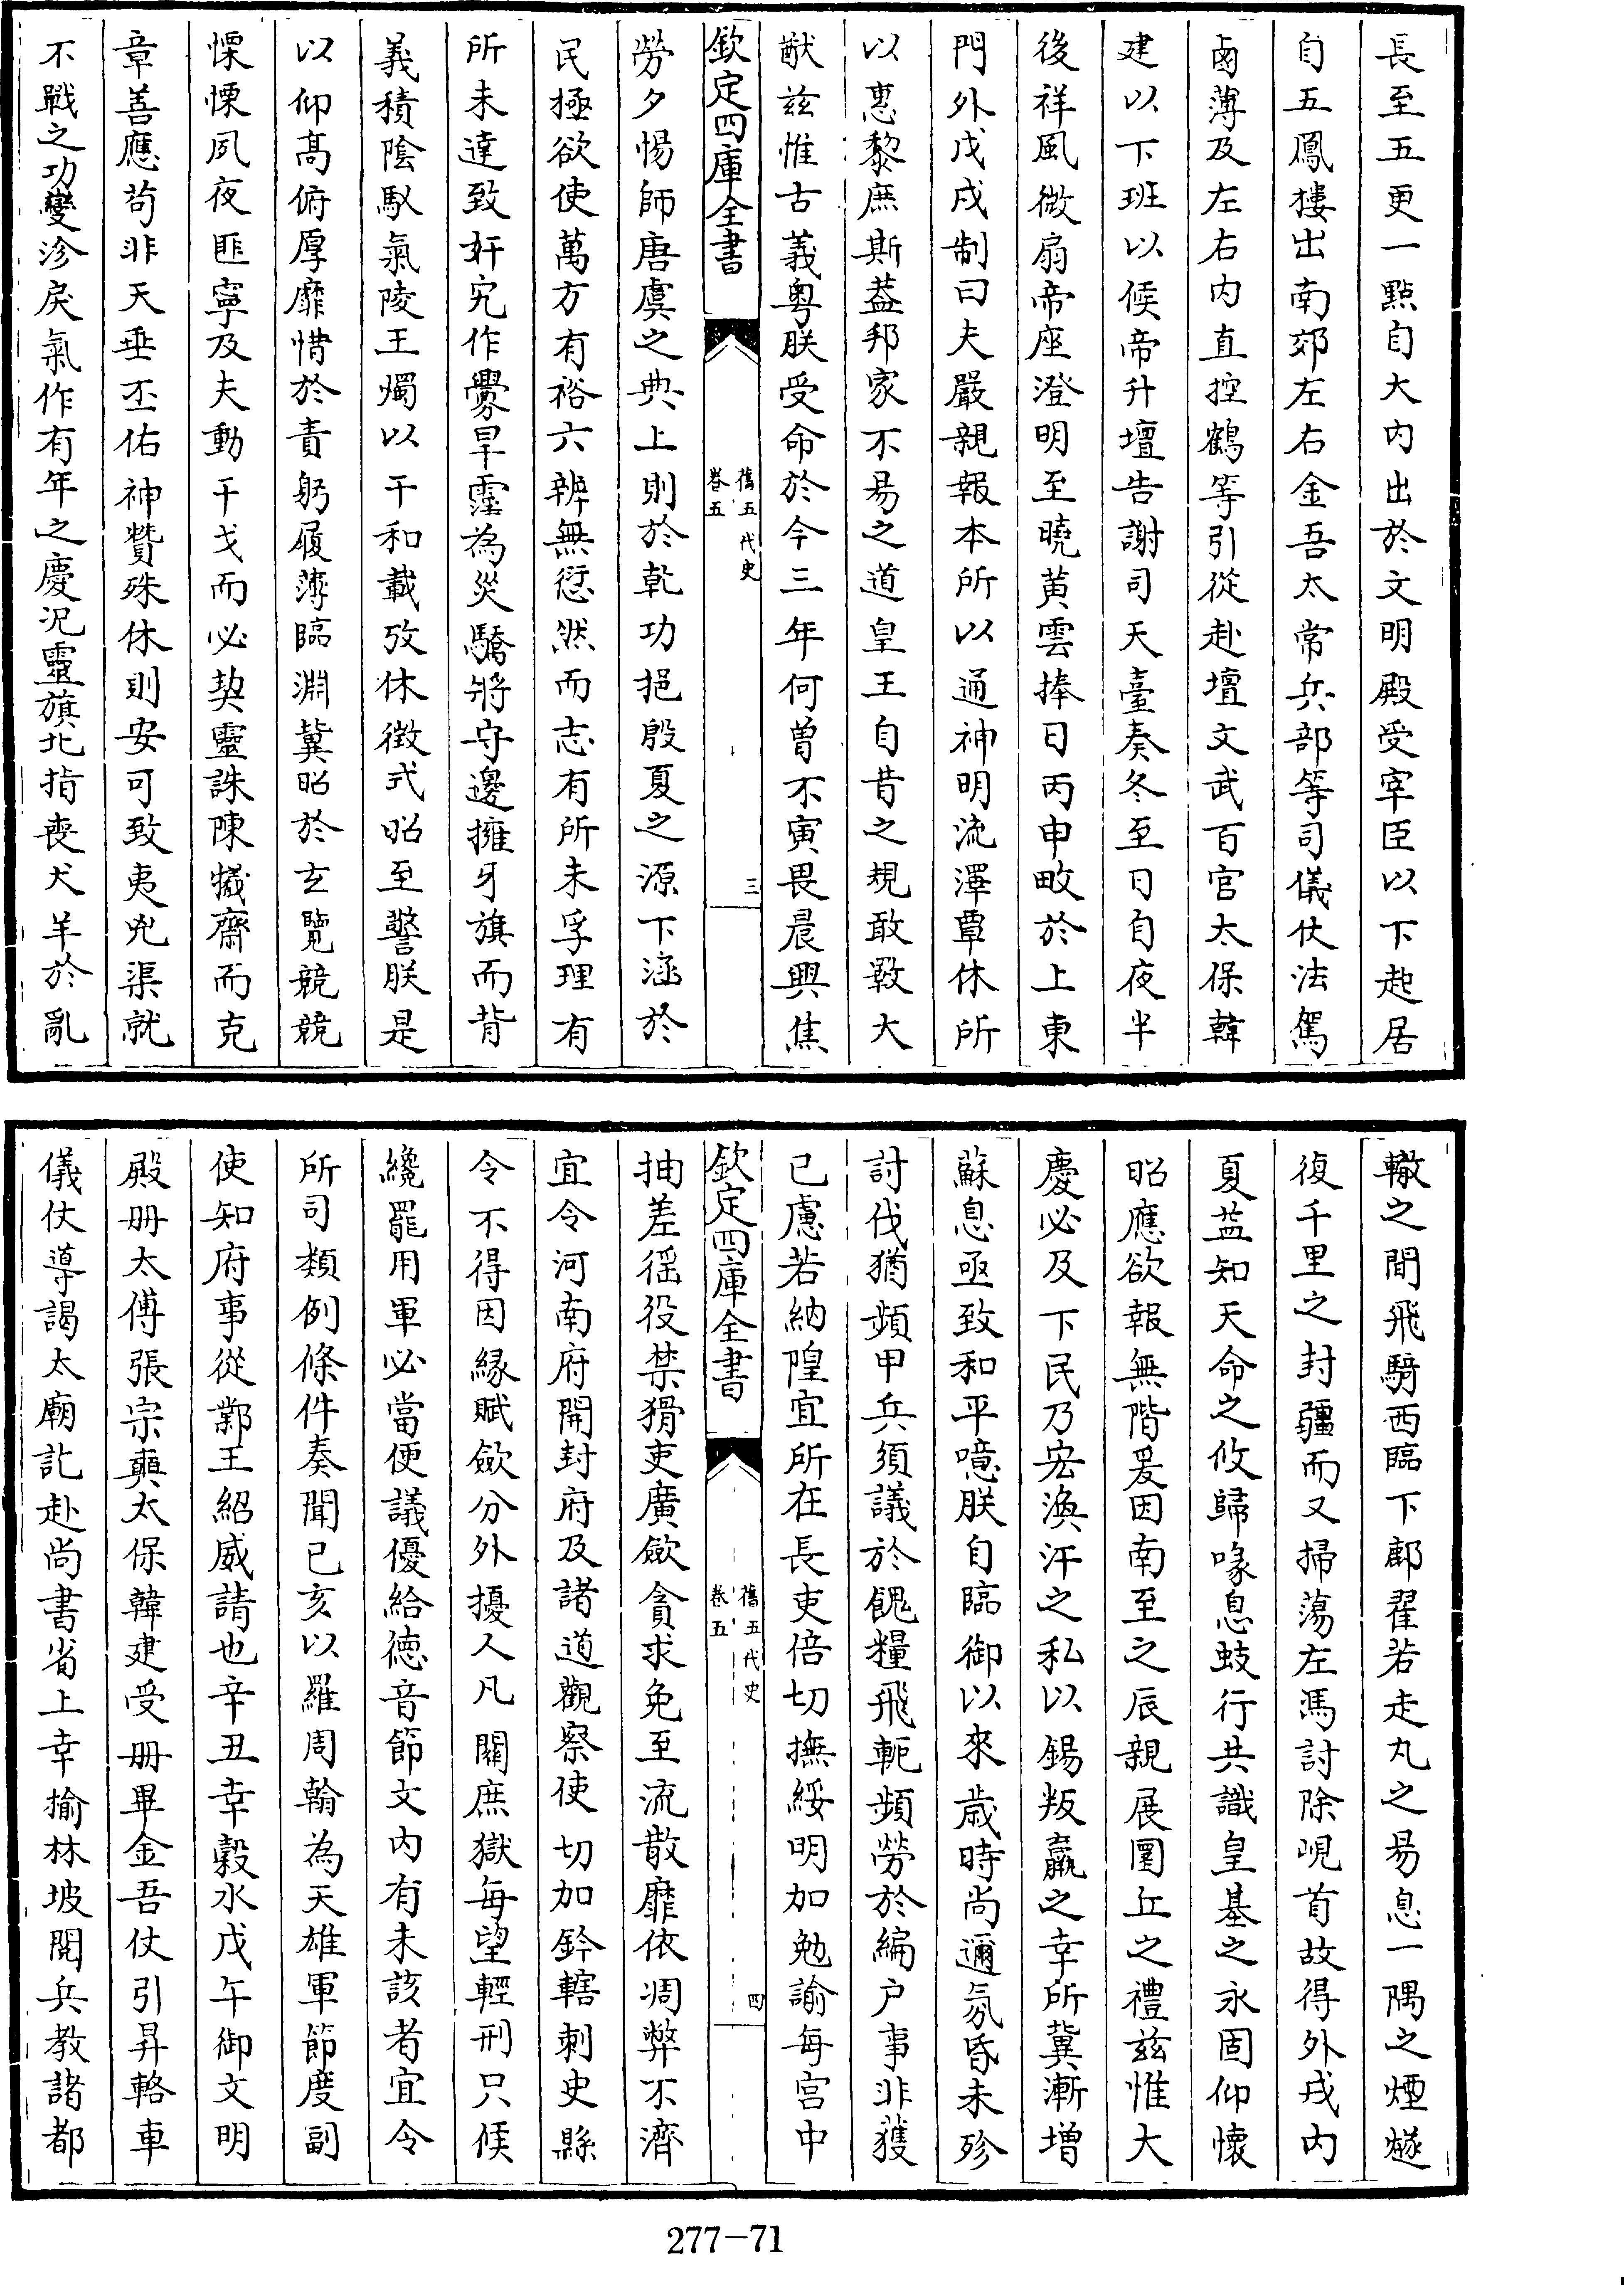 長至五更一點自大内出於文明殿受宰臣以下起居
自五鳳樓出南郊左右金吾太常兵部等司儀仗法駕
鹵薄及左右内直控鶴等引從赴壇文武百官太保韓
建以下班以候帝升壇告謝司天臺奏冬至日自夜半
後祥風微扇帝座澄明至曉黄雲捧日丙申畋於上東
門外戊戌制曰夫嚴親報本所以通神明流澤覃休所
以惠黎庶斯葢邦家不易之道皇王自昔之規敢斁大
猷兹惟古義粤朕受命於今三年何曾不寅畏晨興焦
欽定四庫全書
舊五代史
卷五
三
勞夕惕師唐虞之典上則於乾功挹殷夏之源下涵於
民極欲使萬方有裕六辨無愆然而志有所未孚理有
所未達致奸宄作釁旱霪為災驕將守邊擁牙旗而背
義積陰馭氣陵王燭以干和載攷休徴式昭至警朕是
以仰髙俯厚靡惜於責躬履薄臨淵冀昭於玄覽兢兢
慄慄夙夜匪寧及夫動干戈而必契靈誅陳犧齋而克
章善應苟非天垂丕佑神贊殊休則安可致夷兇渠就
不戰之功變沴戾氣作有年之慶况靈旗北指喪犬羊於亂
轍之間飛騎西臨下鄜翟若走丸之易息一隅之煙燧
復千里之封疆而又掃蕩左馮討除峴首故得外戎内
夏葢知天命之攸歸喙息蚑行共識皇基之永固仰懷
昭應欲報無階爰因南至之辰親展圜丘之禮兹惟大
慶必及下民乃宏渙汗之私以錫叛羸之幸所冀漸增
蘇息亟致和平噫朕自臨御以來歲時尚邇氛昏未殄
討伐猶頻甲兵須議於餽糧飛輓頻勞於編户事非獲
已慮若納隍宜所在長吏倍切撫綏明加勉諭每宫中
欽定四庫全書
舊五代史
卷五
四
抽差徭役禁猾吏廣斂貪求免至流散靡依凋弊不濟
宜令河南府開封府及諸道觀察使切加鈐轄刺史縣
令不得因緣賦斂分外擾人凡關庶獄每望輕刑只候
纔罷用軍必當便議優給徳音節文内有未該者宜令
所司類例條件奏聞己亥以羅周翰為天雄軍節度副
使知府事從鄴王紹威請也辛丑幸榖水戊午御文明
殿册太傅張宗奭太保韓建受册畢金吾仗引昇輅車
儀仗導謁太廟訖赴尚書省上幸榆林坡閲兵教諸都
277-71